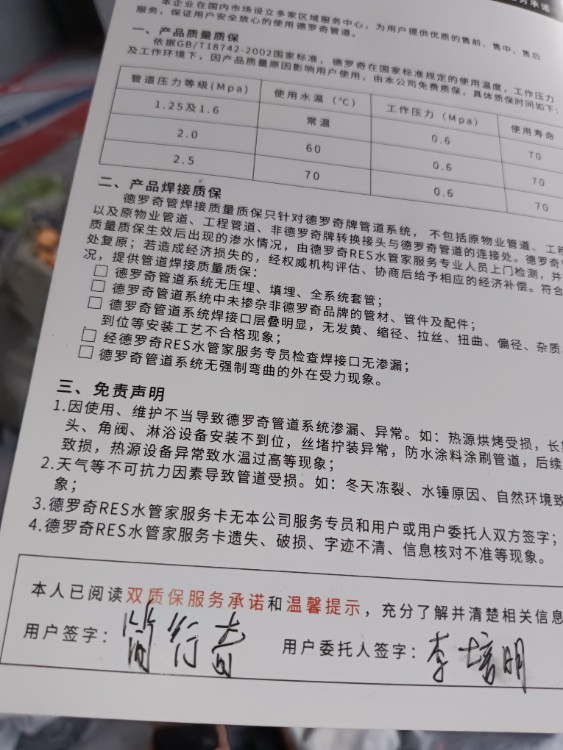 务承诺
本企业在国内市场设立多家区域服务中心，为用户提供优质的售前、售中、售后
服务，保证用户安全放心的使用德罗奇管道。
一、产品质量质保
依据GB/T18742-2002国家标准，德罗奇在国家标准规定的使用温度，工作压力
及工作环境下，因产品质量原因影响用户使用，由本公司免费质保，具体质保时间如下：
管道压力等级(Mpa) 使用水温（℃） 工作压力（Mpa） 使用寿命
1.25及1.6 常温 0.6 70
2.0 60 0.6 70
2.5 70 0.6 70
二、产品焊接质保
德罗奇管焊接质量质保只针对德罗奇牌管道系统，不包括原物业管道、工程
以及原物业管道、工程管道、非德罗奇牌转换接头与德罗奇管道的连接处。德罗奇
质量质保生效后出现的渗水情况，由德罗奇RES水管家服务专业人员上门检测，并
处复原；若造成经济损失的，经权威机构评估、协商后给予相应的经济补偿。符合
况，提供管道焊接质量质保：
□ 德罗奇管道系统无压埋、填埋、全系统套管；
□ 德罗奇管道系统中未掺杂非德罗奇品牌的管材、管件及配件；
□ 德罗奇管道系统焊接口层叠明显，无发黄、缩径、拉丝、扭曲、偏径、杂质
到位等安装工艺不合格现象；
□ 经德罗奇RES水管家服务专员检查焊接口无渗漏；
□ 德罗奇管道系统无强制弯曲的外在受力现象。
三、免责声明
1.因使用、维护不当导致德罗奇管道系统渗漏、异常。如：热源烘烤受损，长
头、角阀、淋浴设备安装不到位，丝堵拧装异常，防水涂料涂刷管道，后续
致损，热源设备异常致水温过高等现象；
2.天气等不可抗力因素导致管道受损。如：冬天冻裂、水锤原因、自然环境致
象；
3.德罗奇RES水管家服务卡无本公司服务专员和用户或用户委托人双方签字；
4.德罗奇RES水管家服务卡遗失、破损、字迹不清、信息核对不准等现象。
本人已阅读双质保服务承诺和温馨提示，充分了解并清楚相关信息
用户签字： 用户委托人签字：李培明